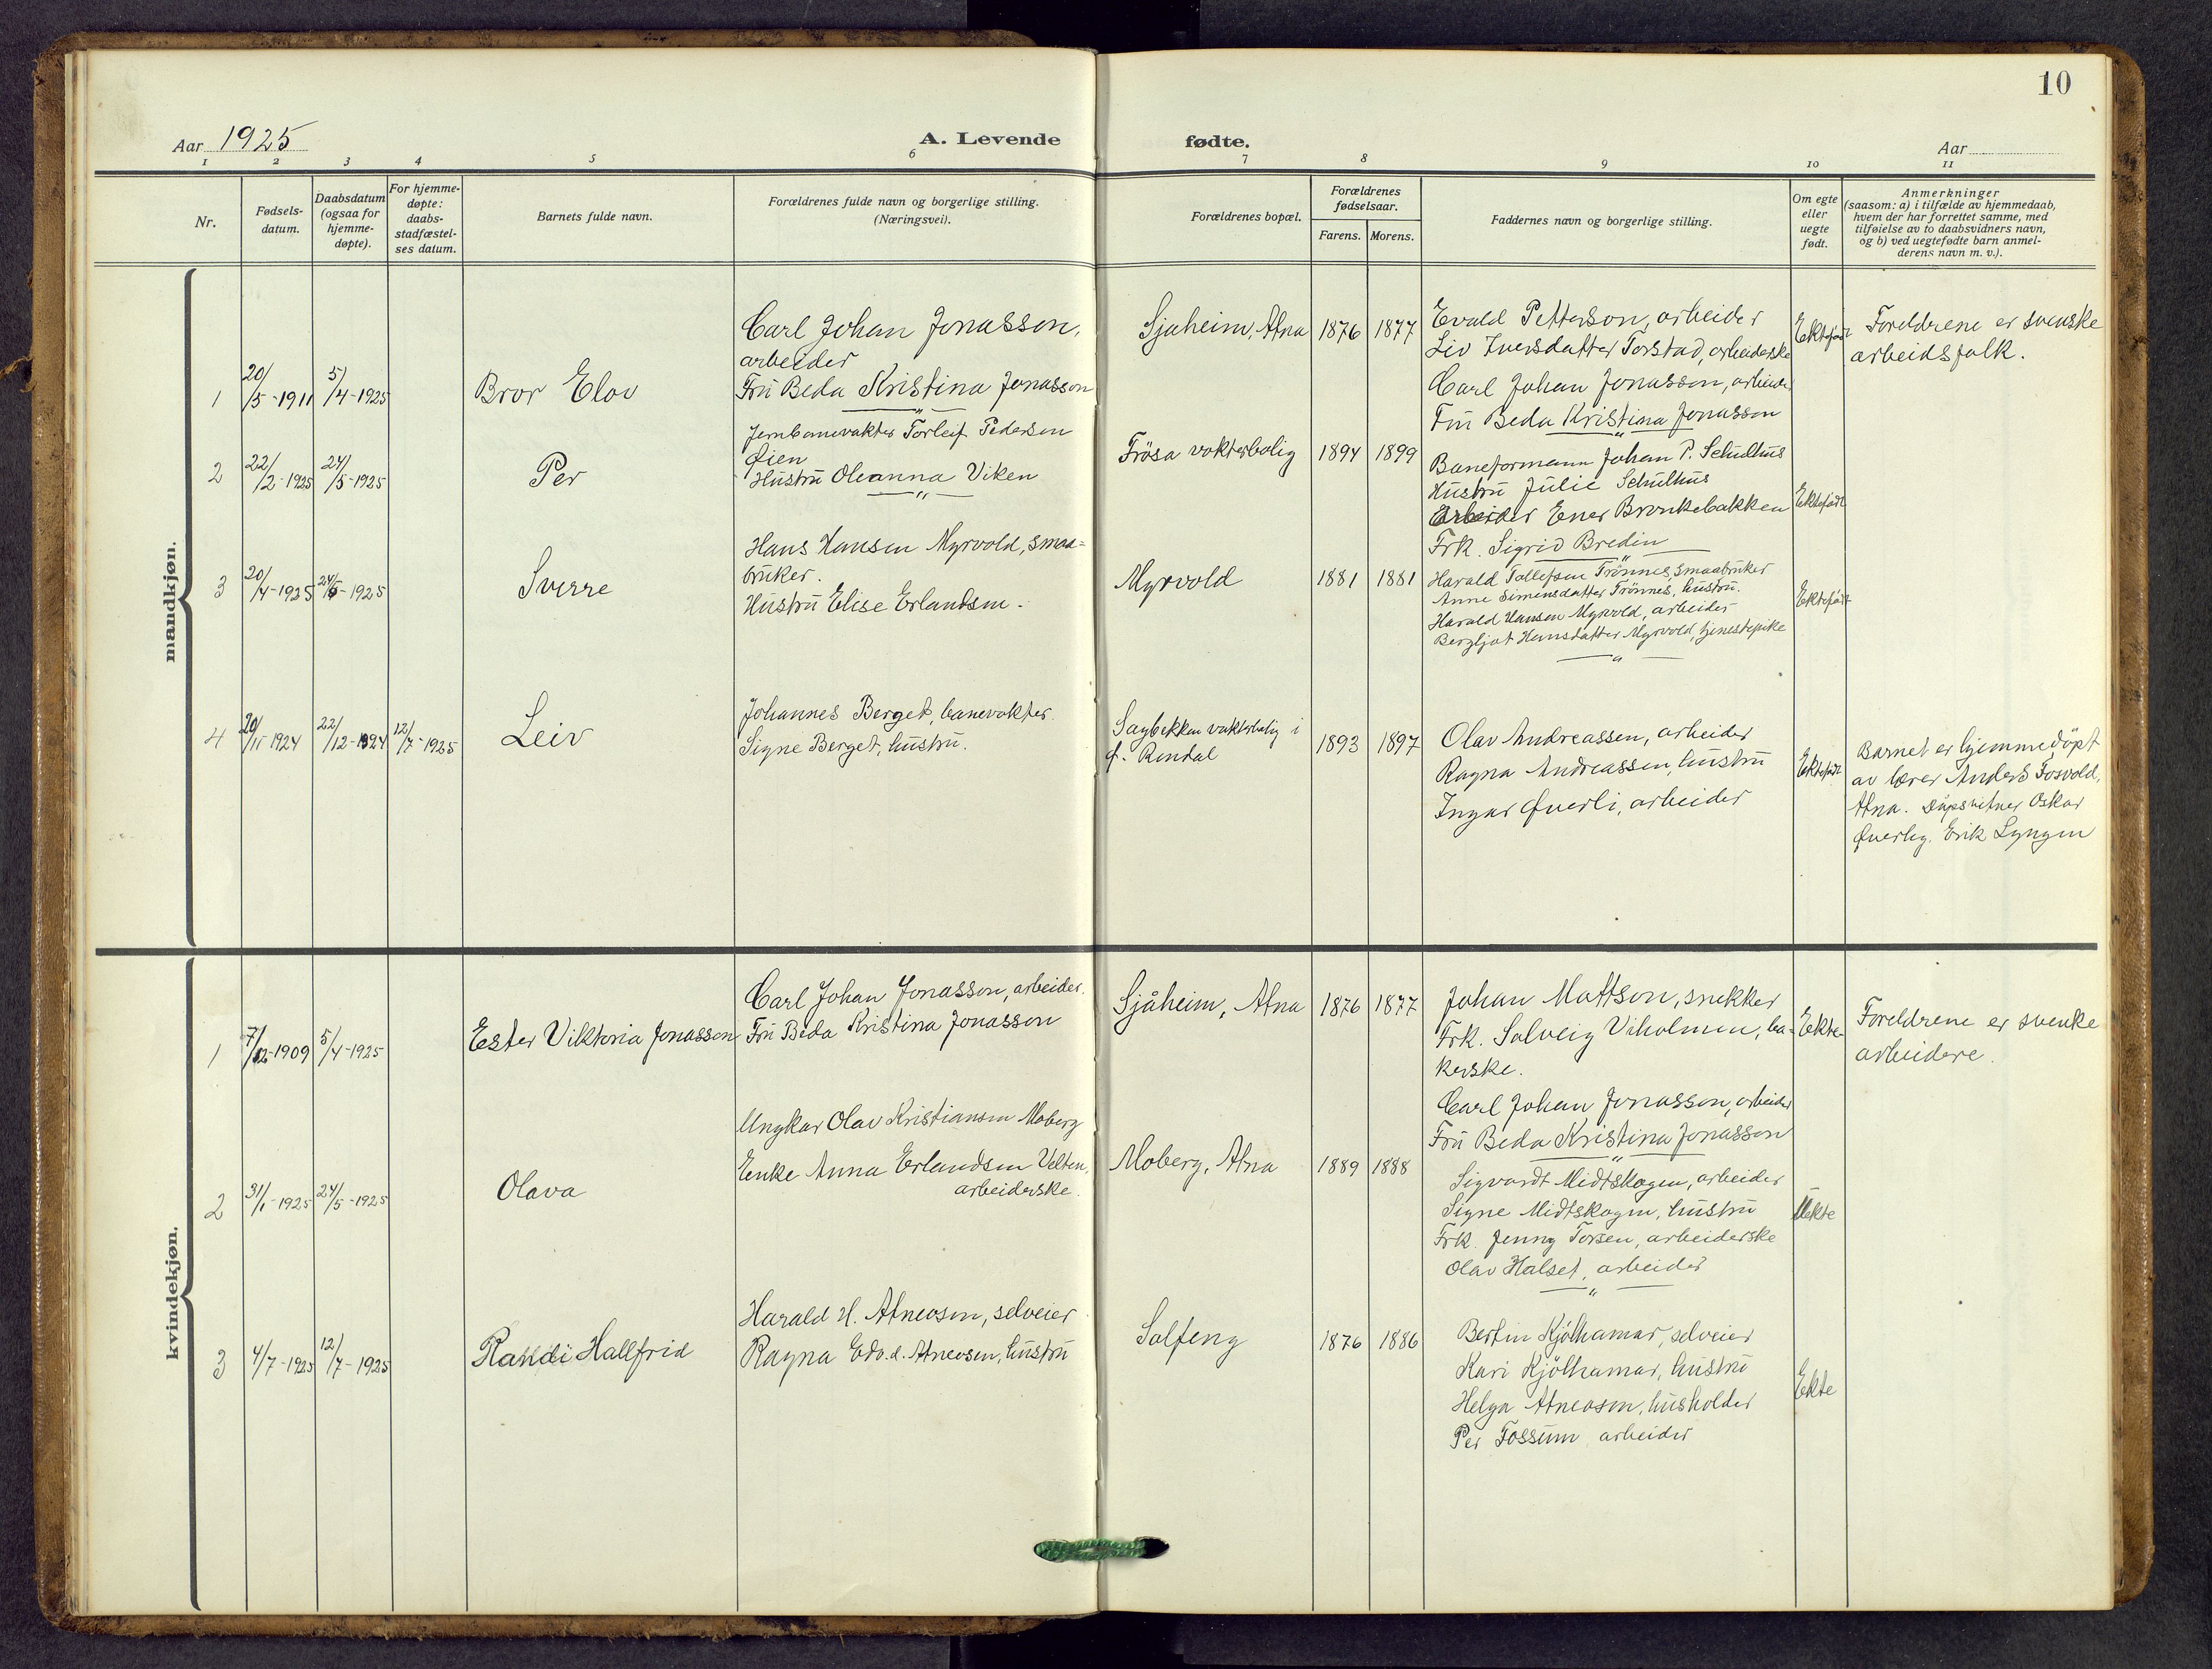 10
Aar 1925
A. Levende
fødte.
Aar
1 2 3 4 5 6 7 8 9 10 11
Nr.
Fødsels-
datum.
Daabsdatum
(ogsaa for
hjemme-
døpte).
For hjemme-
døpte:
daabs-
stadfæstel-
ses datum.
Barnets fulde navn.
Forældrenes fulde navn og borgerlige stilling.
(Næringsvei).
Forældrenes bopæl.
Forældrenes
fødselsaar.
Farens. Morens.
Faddernes navn og borgerlige stilling.
Om egte
eller
uegte
født.
Anmerkninger
(saasom: a) i tilfælde av hjemmedaab,
hvem der har forrettet samme, med
tilføielse av to daabsvidners navn,
og b) ved uegtefødte barn anmel-
derens navn m. v.).
mandkjøn.
1
20/5-1911
5/4-1925
Bror Elov
Carl Johan Jonasson,
arbeider
Frü Beda Kristina Jonasson
Sjaheim, Atna
1876
1877
Evald Petterson, arbeider
Liv Iversdatter Torstad, arbeiderske
Carl Johan Jonasson, arbeider
Frü Beda Kristina Jonasson
Ektefödt
Foreldrene er svenske
arbeidsfolk.
2
22/2-1925
24/5-1925
Per
Jernbanevakter Torleif Pedersen
Øien
Hüstrü Oleanna Viken
Frösa vokterbolig
1894
1899
Baneformann Johan P. Schulhüs
Hüstrü Jülie Schülhüs
Arbeider Ener Bronkebakken
Frk. Sigrid Bredin
Ektefödt
3
20/4-1925
24/5-1925
Sverre
Hans Hansen Myrvold, smaa=
brüker.
Hüstrü Elise Erlandsen.
Myrvold
1881
1881
Harald Tollefsen Trönnes, smaabrüker
Anne Simensdatter Trönnes, hüstrü.
Harald Hansen Myrvold, arbeider
Bergljot Hansdatter Myrvold, tjenestepike
Ektefödt
4
20/11-1924
22/12-1924
12/7-1925
Leiv
Johannes Berget, banevokter.
Signe Berget, hüstrü.
Sagbekken vokterbolig i
Ø. Rendal
1893
1897
Olav Andreassen, arbeider
Ragna Andreassen, hüstrü
Ingar Øverli, arbeider
Ektefödt
Barnet er hjemmedöpt
av lærer Anders Fosvold,
Atna. Dåpsvitner Oskar
Øverby. Erik Lyngen
kvindekjøn.
1
7/12-1909
5/4-1925
Ester Viktoria Jonasson
Carl Johan Jonasson, arbeider.
Frü Beda Kristina Jonasson
Sjåheim, Atna
1876
1877
Johan Mattson, snekker
Frk. Solveig Viholmen, ba-
kerske.
Carl Johan Jonasson, arbeider
Frü Beda Kristina Jonasson
Ekte-
Foreldrene er svenke
arbeidere.
2
31/1-1925
24/5-1925
Olava
Ungkar Olav Kristiansen Moberg
Enke Anna Erlandsen Velten,
arbeiderske.
Moberg, Atna
1889
1888
Sigvardt Midtskogen, arbeider
Signe Midtskogen, hüstrü
Frk. Jenny Torsen, arbeiderske
Olav Halset, arbeider
Uekte
3
4/7-1925
12/7-1925
Randi Hallfrid
Harald H. Atneosen, selveier
Ragna Edv.d. Atneosen, hüstrü
Solfeng
1876
1886
Bertin Kjölhamar, selveier
Kari Kjölhamar, hüstrü
Helga Atneosen, hüsholder
Per Fossüm arbeider
Ekte